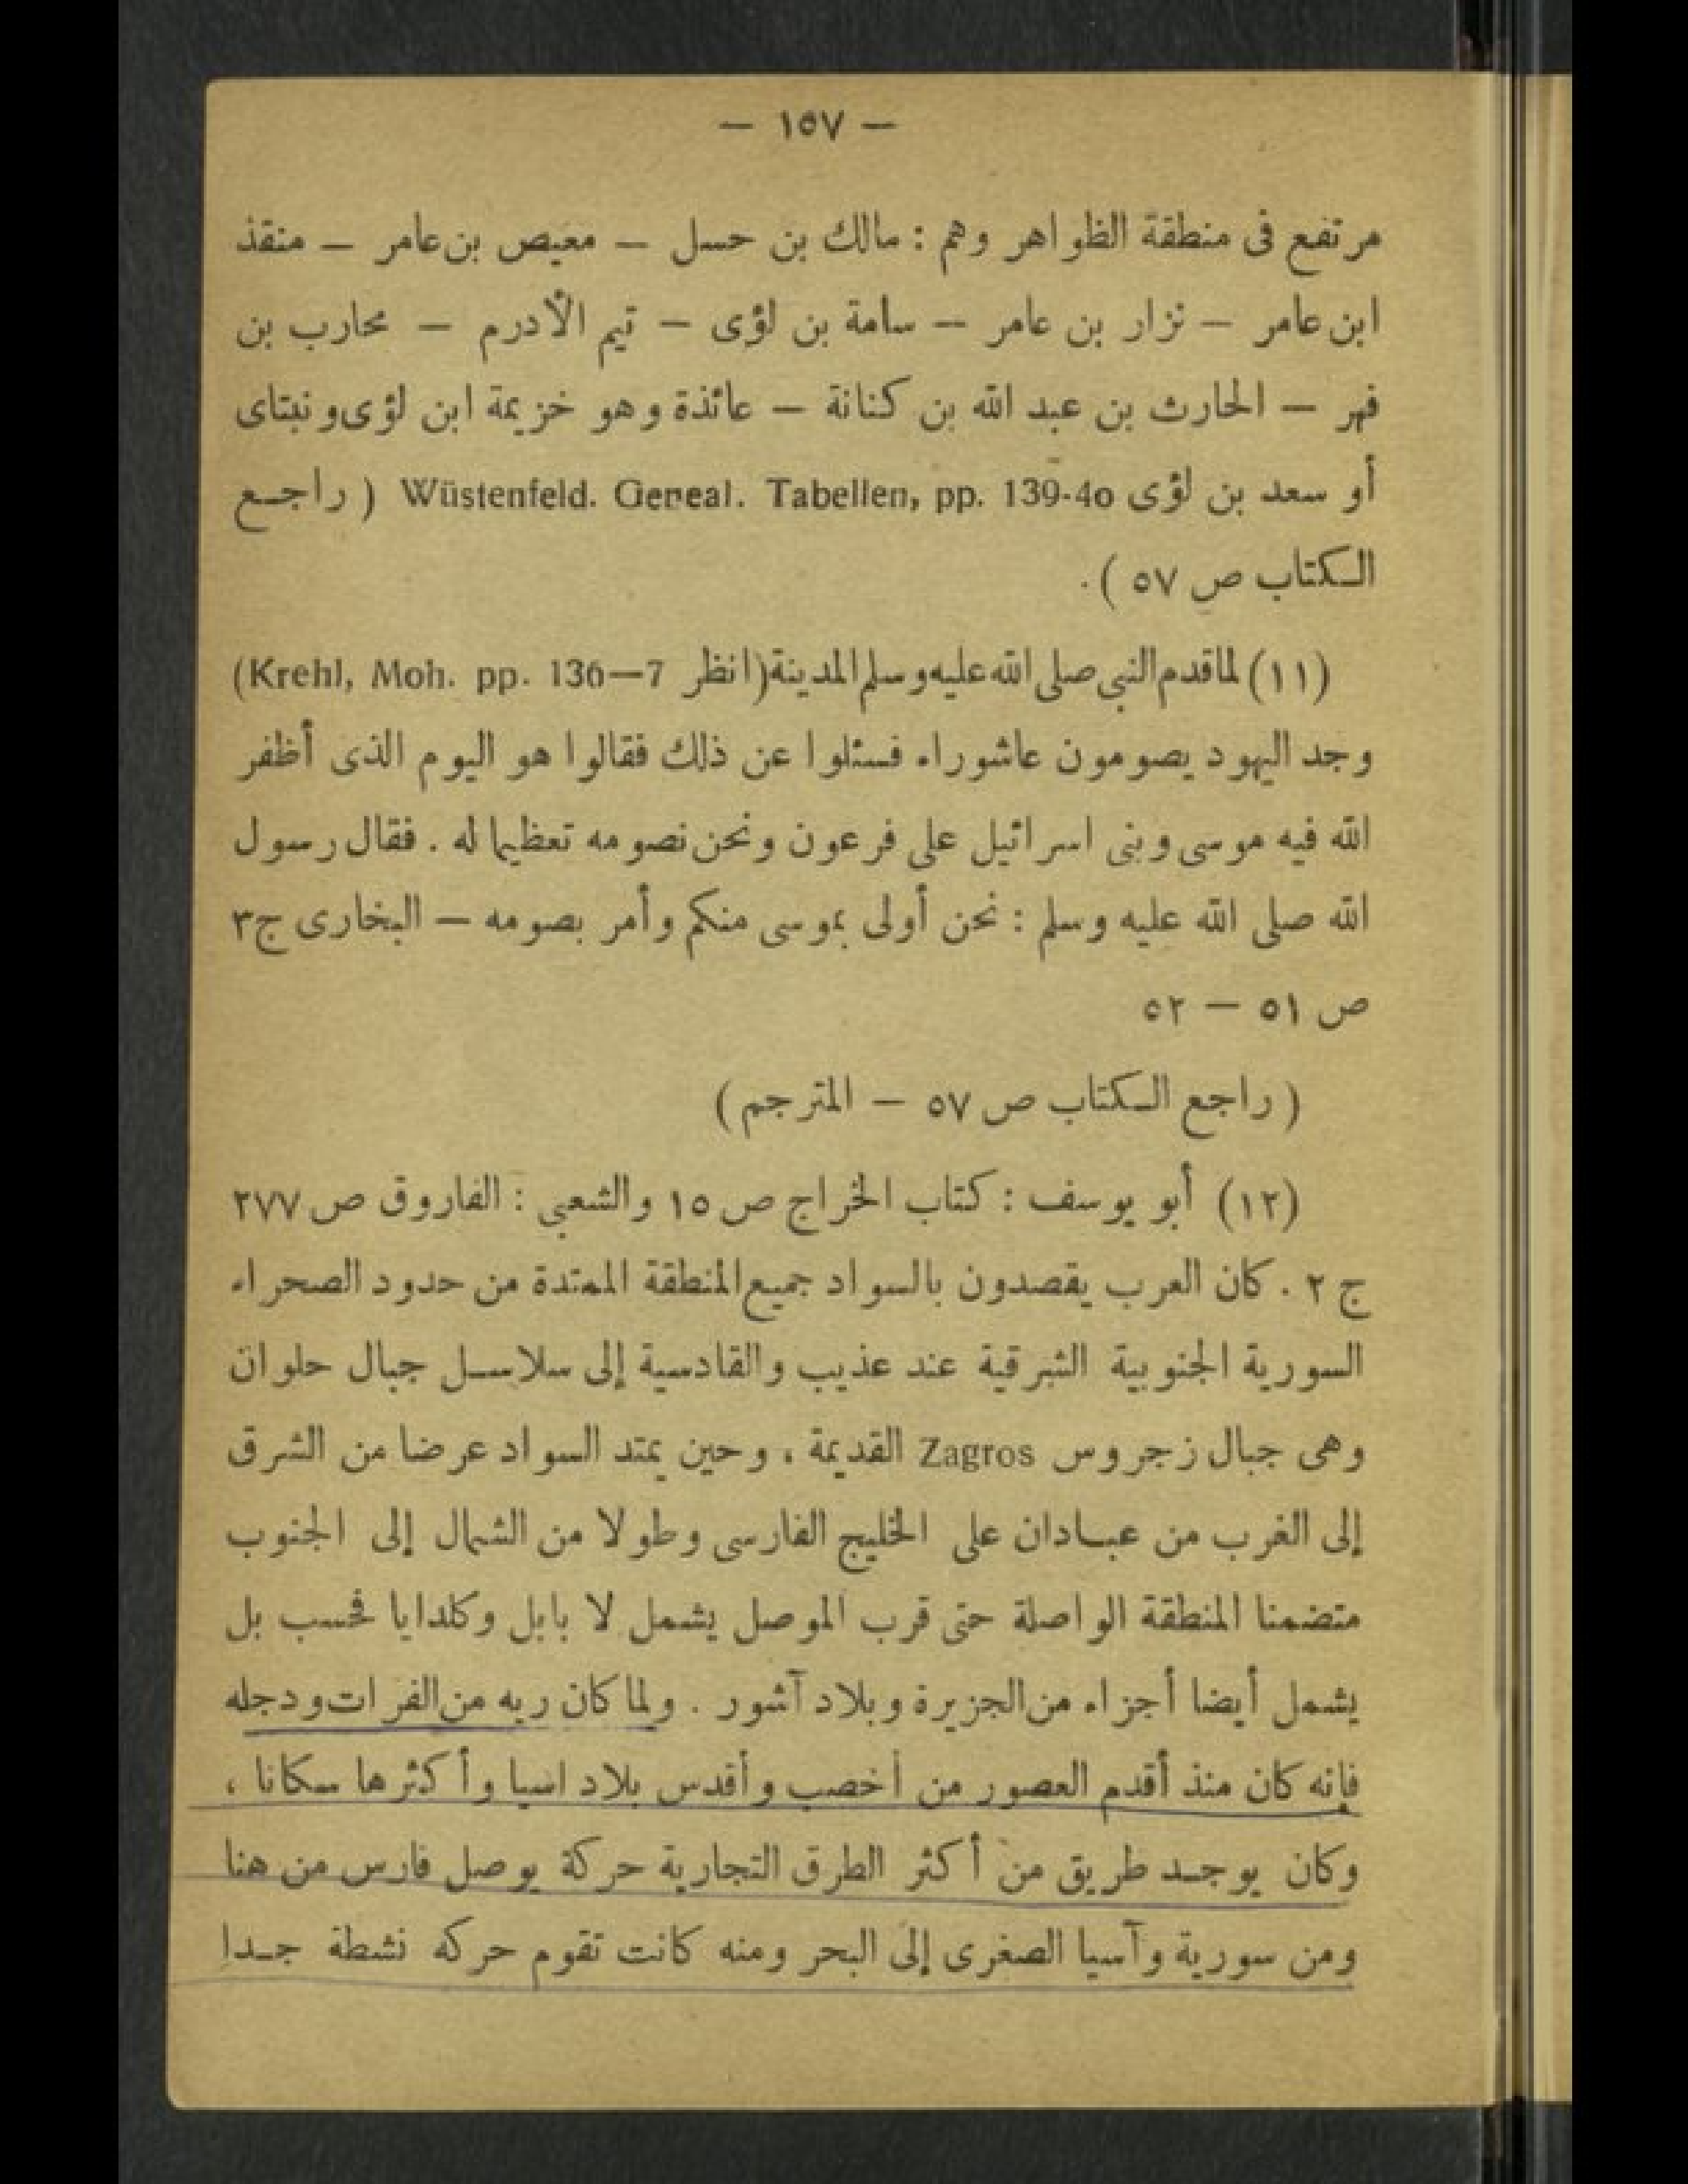 — ١٥٧ —
مرتفع فى منطقة الظواهر وهم : مالك بن حسل — معيص بن عامر — منقذ
ابن عامر — نزار بن عامر — سامة بن لؤى — تيم الأدرم — محارب بن
فهر — الحارث بن عبد الله بن كنانة — عائذة وهو خزيمة ابن لؤى ونبتاى
أو سعد بن لؤى Wüstenfeld. Geneal. Tabellen, pp. 139-40 ( راجع
الكتاب ص ٥٧ ) .
(١١) لما قدم النبى صلى الله عليه وسلم المدينة (انظر Krehl, Moh. pp. 136—7)
وجد اليهود يصومون عاشوراء فسئلوا عن ذلك فقالوا هو اليوم الذى أظفر
الله فيه موسى وبنى اسرائيل على فرعون ونحن نصومه تعظيما له . فقال رسول
الله صلى الله عليه وسلم : نحن أولى بموسى منكم وأمر بصومه — البخارى ج٣
ص ٥١ — ٥٢
( راجع الكتاب ص ٥٧ — المترجم )
(١٢) أبو يوسف : كتاب الخراج ص ١٥ والشعبى : الفاروق ص ٢٧٧
ج ٢ . كان العرب يقصدون بالسواد جميع المنطقة الممتدة من حدود الصحراء
السورية الجنوبية الشرقية عند عذيب والقادسية إلى سلاسل جبال حلوان
وهى جبال زجروس Zagros القديمة ، وحين يمتد السواد عرضا من الشرق
إلى الغرب من عبادان على الخليج الفارسى وطولا من الشمال إلى الجنوب
متضمنا المنطقة الواصلة حتى قرب الموصل يشمل لا بابل وكلدايا فحسب بل
يشمل أيضا أجزاء من الجزيرة وبلاد آشور . ولما كان ريه من الفرات ودجله
فإنه كان منذ أقدم العصور من أخصب وأقدس بلاد اسيا وأكثرها سكانا ،
وكان يوجد طريق من أكثر الطرق التجارية حركة يوصل فارس من هنا
ومن سورية وآسيا الصغرى إلى البحر ومنه كانت تقوم حركه نشطة جدا